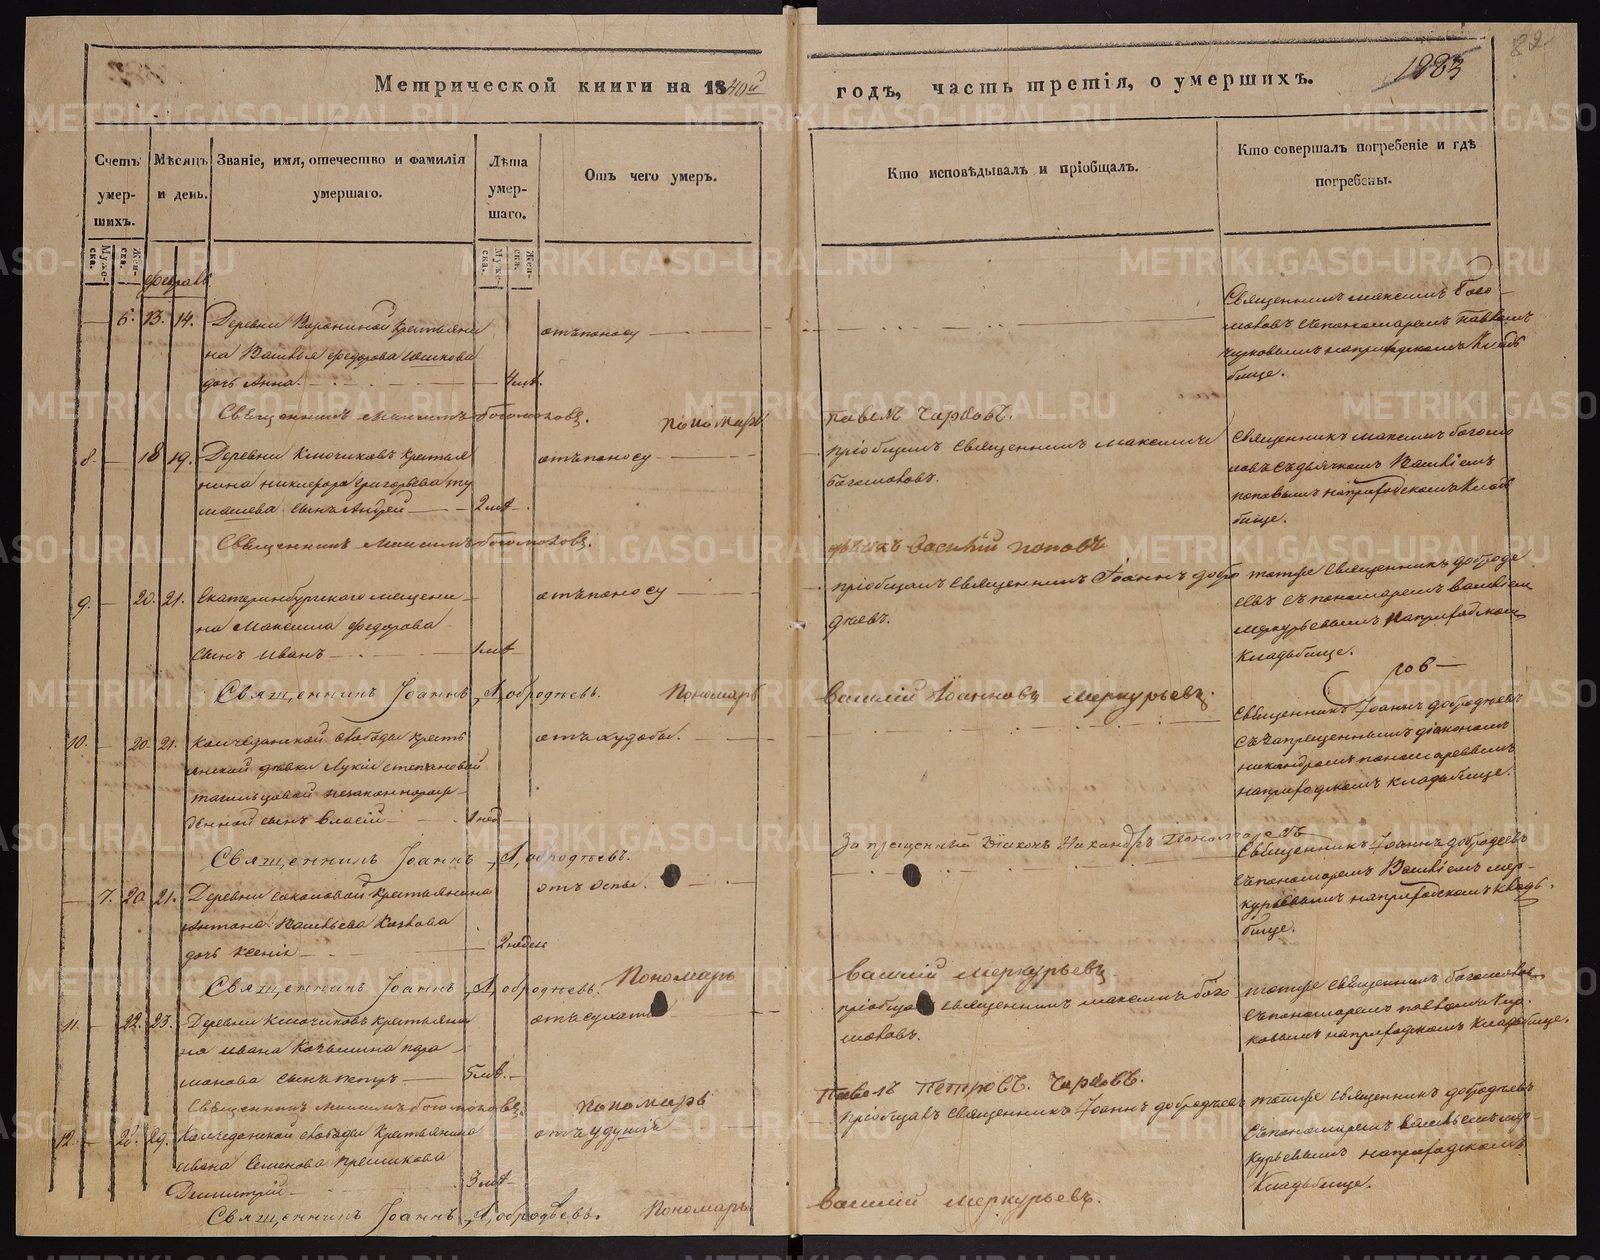 Метрической книги на 1840й
годъ, часть третія, о умершихъ.
1883
82
Счетъ умер-шихъ.
Мѣсяцъ и день.
Званіе, имя, отечество и фамилія
умершаго.
Лѣта умер-шаго.
Отъ чего умеръ.
Кто исповѣдывалъ и пріобщалъ.
Кто совершалъ погребеніе и гдѣ
погребены.
Муже-ска.
Жен-ска.
Муже-ска.
Жен-ска.
февраль
6. 13. 14. Деревни Ворониной крестьяни
на Василья Федорова
дочь Анна. 4 лѣт.
отъ поносу
Священникъ Максимъ Бого-
моловъ съ пономаремъ Павломъ
на приходскомъ кладб
бище.
Священникъ Максимъ Богомоловъ.
Пономарь
Павелъ
8. 18 19. Деревни Ключиковъ крестья
нина Никифора Григорьева Ту
машева сынъ Андрей 2 лѣт.
отъ поносу
пріобщилъ священникъ Максимъ
Богомоловъ.
Священникъ Максимъ Богомо
ловъ съ дьячкомъ Василіемъ
Поповымъ на приходскомъ клад
бище.
Священникъ Максимъ Богомоловъ.
дьячекъ Василій Поповъ
9. 20. 21. Екатеринбургскаго мещани-
на Максима Федорова
сынъ Иванъ 1 лѣт
отъ поносу
пріобщалъ священникъ Іоаннъ Добро
дѣевъ.
тотъ же священникъ Добродѣ
евъ съ пономаремъ Василіем
Меркурьевымъ на приходском
кладбище.
Священникъ Іоаннъ Добродѣевъ.
Пономарь
Василій Меркурьевъ.
10. 20. 21. Колчеданской слободы кресть
янской дѣвки Лукіи Степановой
незаконнорож-
денной сынъ Власій 1 нед
отъ худобы.
Священникъ Іоаннъ Добродѣевъ
съ запрещеннымъ діакономъ
Никандромъ Пономаревымъ
на приходском кладбище.
Священникъ Іоаннъ Добродѣевъ.
Запрещенный Діаконъ Никандръ Пономаревъ
7. 20. 21. Деревни Соколовой крестьянина
Антона Васильева
дочь Ксенія 2 недели
отъ оспы.
Священникъ Іоаннъ Добродѣевъ
съ пономаремъ Василіемъ Мер-
курьевымъ на приходском кладь-
бище.
Священникъ Іоаннъ Добродѣевъ.
Пономарь
Василій Меркурьевъ.
11. 22. 23. Деревни Ключиковъ крестьяни
на Ивана Козьмина
сынъ Петръ 5 лѣт.
пріобщалъ священникъ Максимъ Бого
моловъ.
тотъ же священникъ Богомолов
съ пономаремъ Павломъ
на приходском кладбище.
Священникъ Максимъ Богомоловъ.
Пономарь
Павелъ Петровъ.
12. 28. 29. Колчеданской слободы крестьянина
Ивана Семенова
Димитрій 3 лѣт
отъ удушія
Пріобщалъ священникъ Іоаннъ Добродѣев
тотъ же священникъ Добродѣевъ
съ пономаремъ Васильемъ Мер
курьевымъ на приходскомъ
кладбище.
Священникъ Іоаннъ Добродѣевъ.
Пономарь
Василій Меркурьевъ.
METRIKI.GASO-URAL.RU